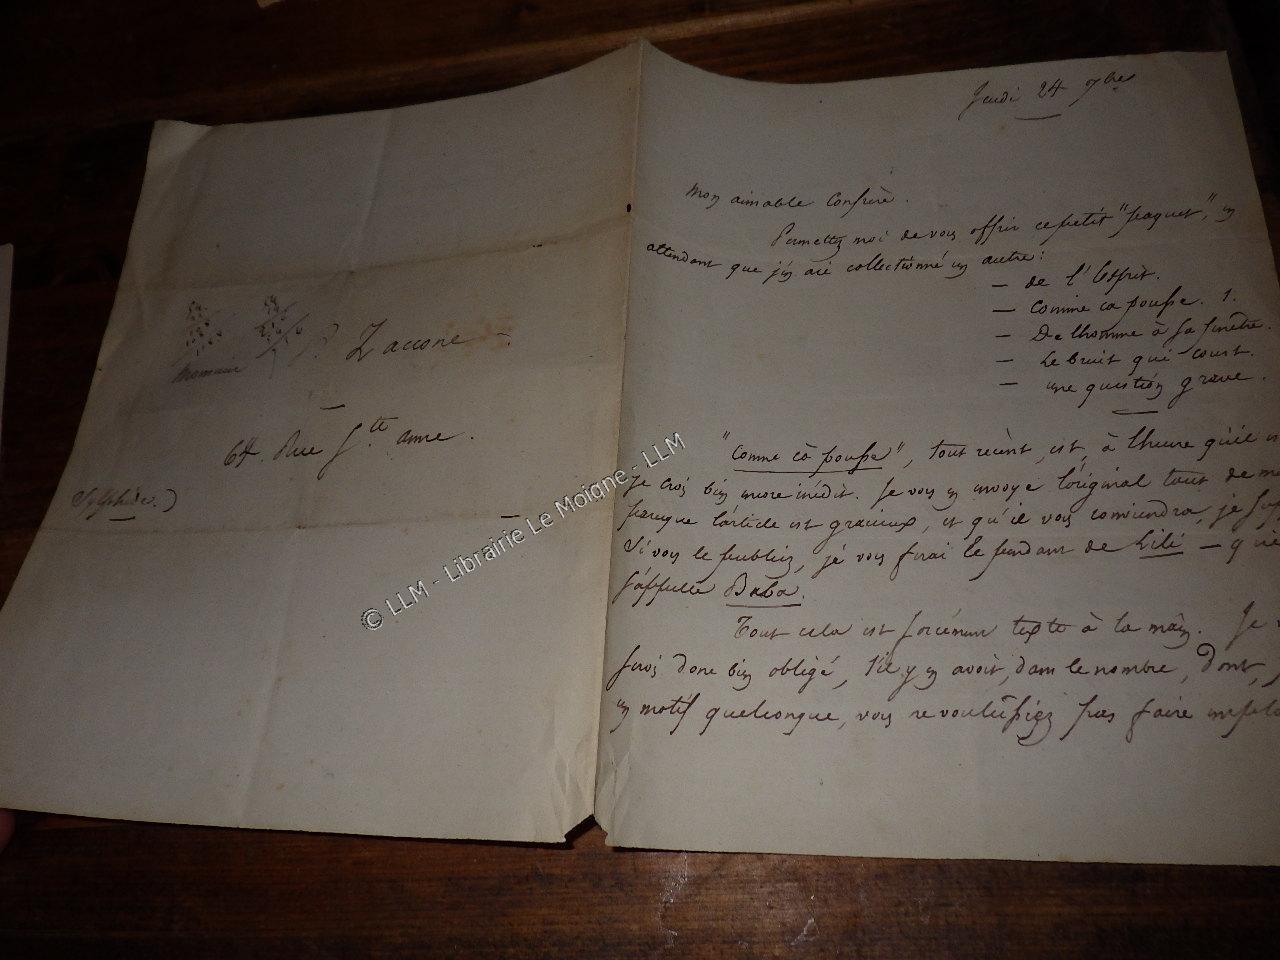 Monsieur
P. Zaccone -
64. Rue Ste anne.
(Sylphide.)
Jeudi 24 7bre
Mon aimable Confrère.
Permettez moi de vous offrir ce petit "paquet", en
attendant que j'en aie collectionné un autre:
— de l'Esprit.
— Comme ça pousse. 1.
— De l'homme à sa fenêtre.
— Le bruit qui court.
— une question grave.
"Comme ça pousse", tout récent, est, à l'heure qu'il
Je crois bien encore inédit. Je vous en envoye l'original tout de
parceque l'article est gracieux, et qu'il vous conviendra, je
Si vous le publiez, je vous ferai le pendant de Lili — qui
s'appelle Baba.
Tout cela est forcément texte à la main. Je
serois donc bien obligé, s'il y en avoit, dans le nombre, dont,
un motif quelconque, vous ne voulussiez pas faire
© LLM - Librairie Le Moigne - LLM